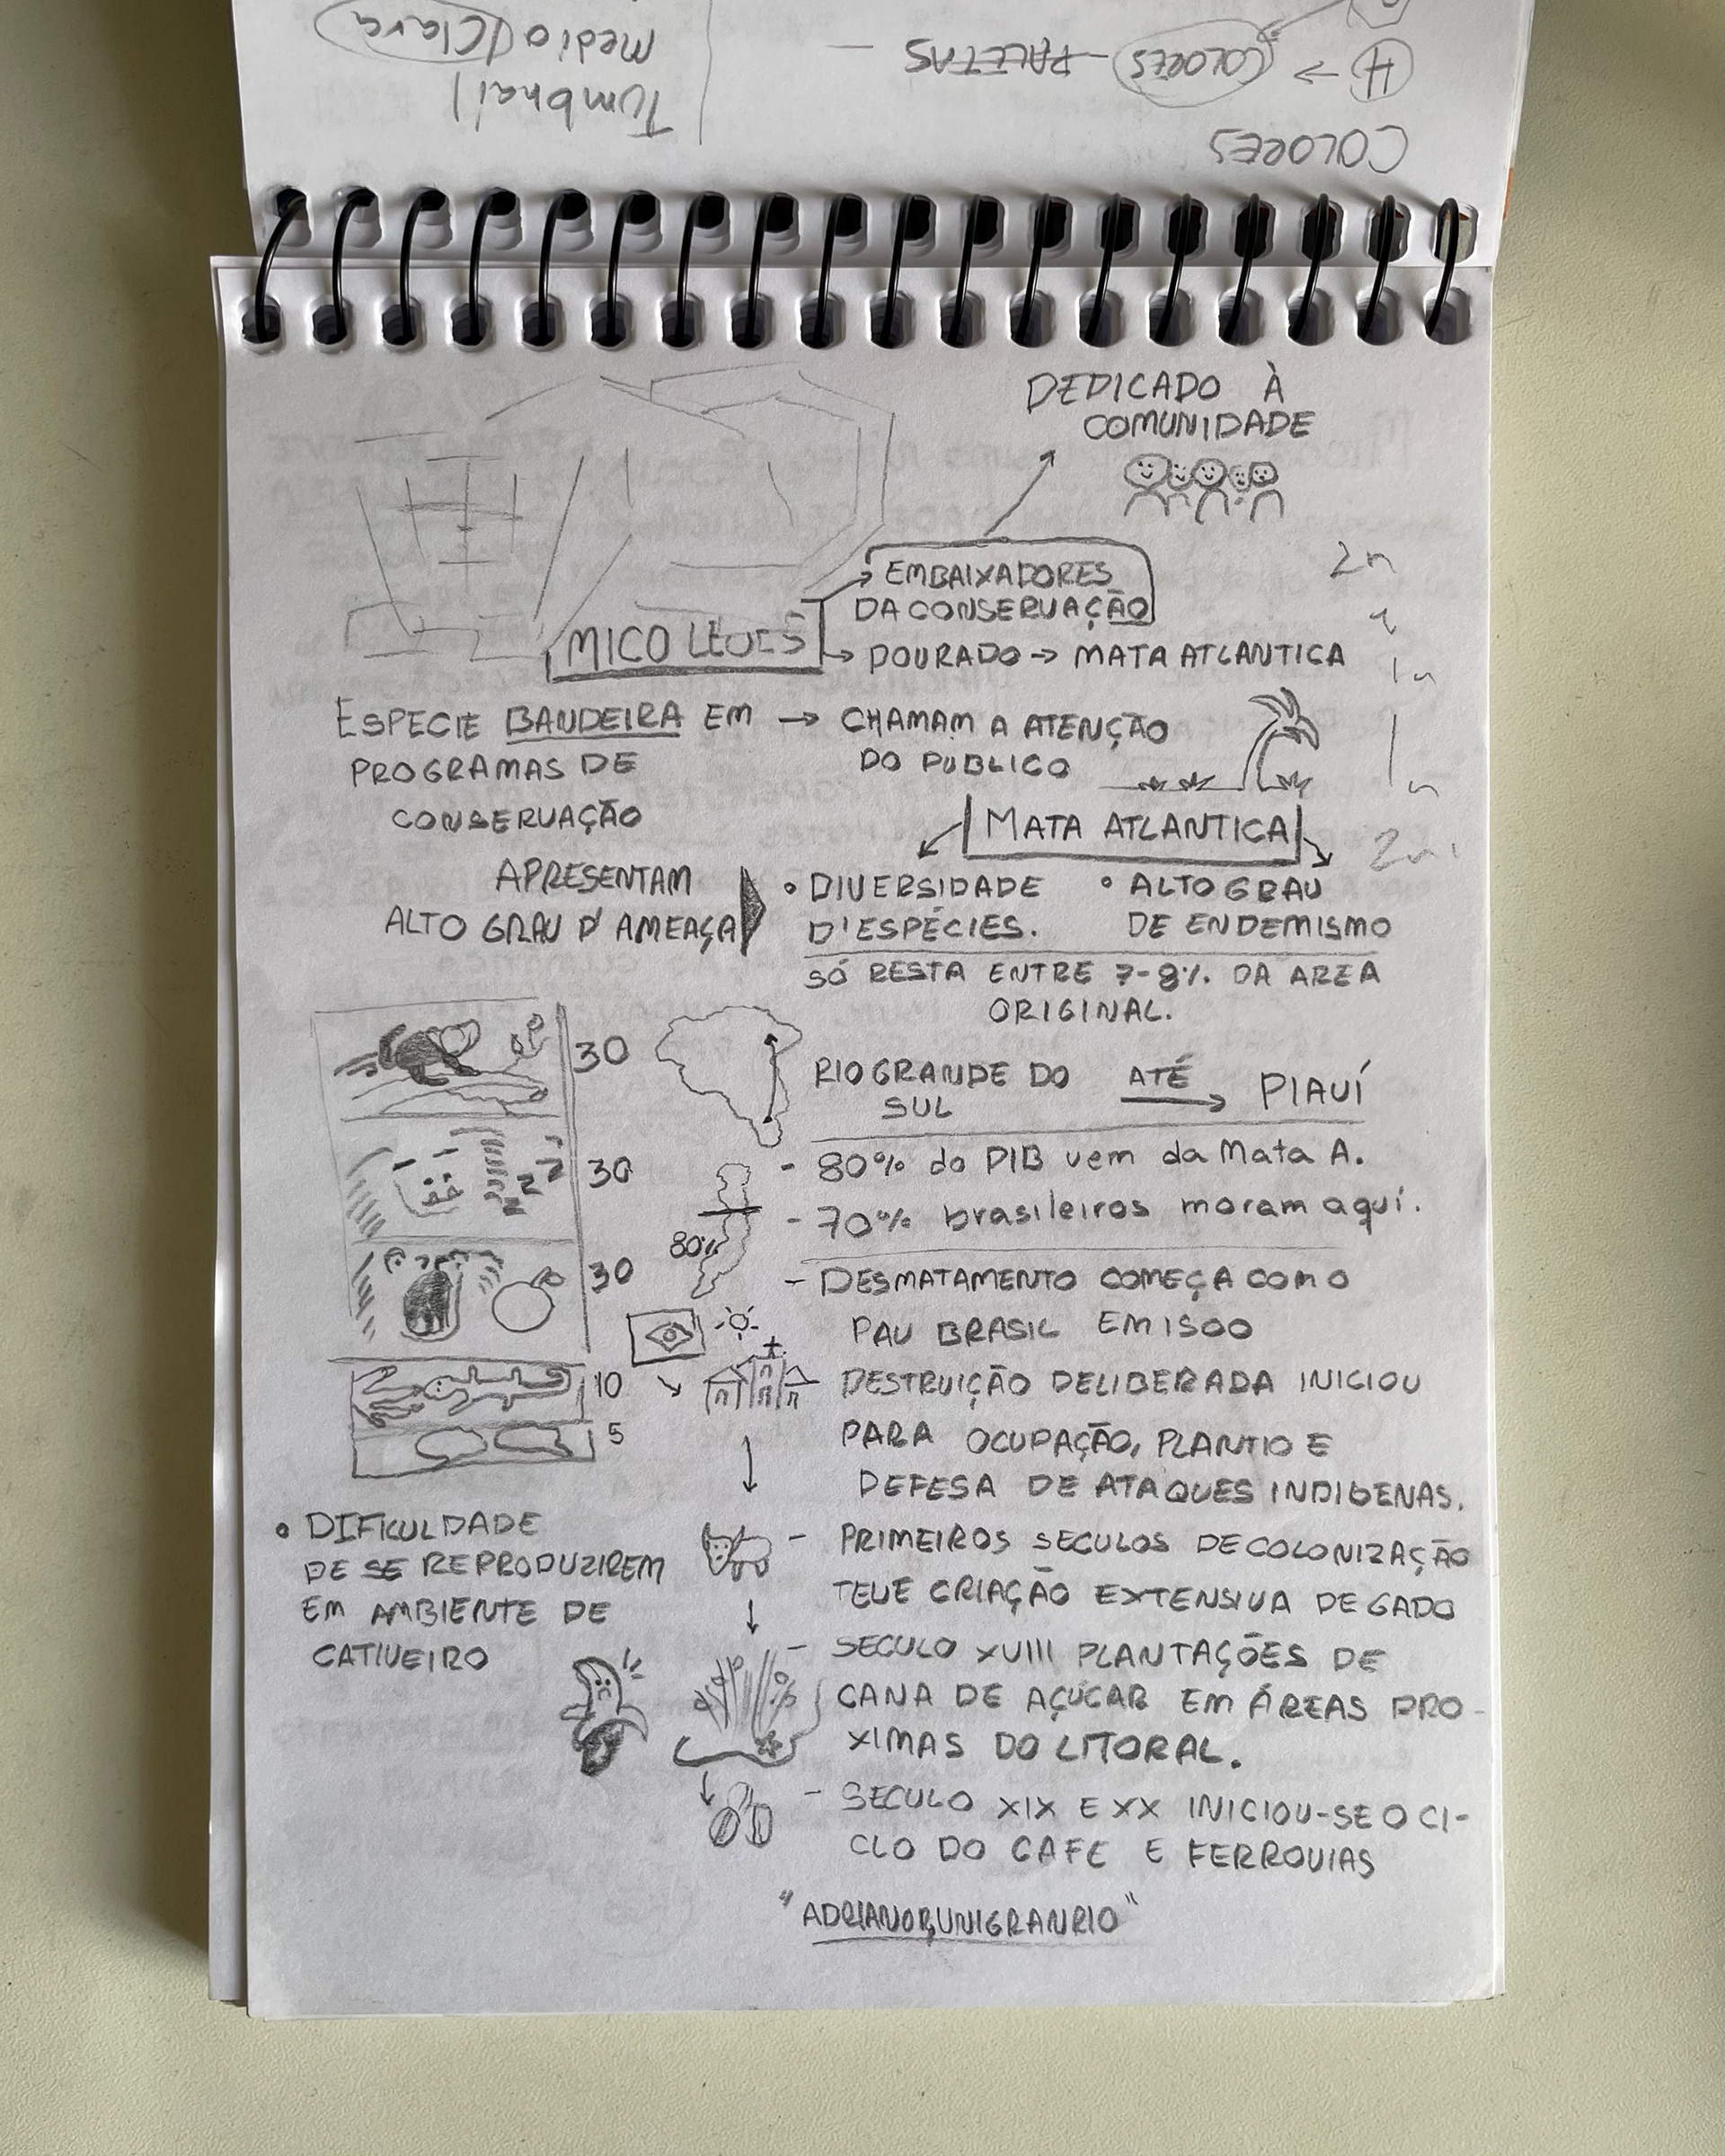 Tumbnail
Medio/Clara
COLORES
H → COLORES - PALETAS -
DEDICADO À
COMUNIDADE
EMBAIXADORES
DA CONSERVAÇÃO
MICO LEOES
DOURADO → MATA ATLANTICA
2n
1n
1n
2n
ESPECIE BANDEIRA EM → CHAMAM A ATENÇÃO
PROGRAMAS DE
CONSERVAÇÃO
DO PUBLICO
MATA ATLANTICA
APRESENTAM
ALTO GRAU D'AMEAÇA
• DIVERSIDADE
D'ESPÉCIES.
• ALTO GRAU
DE ENDEMISMO
SÓ RESTA ENTRE 7-8% DA AREA
ORIGINAL.
30
RIO GRANDE DO
SUL
ATÉ
PIAUÍ
30
zzz
- 80% do PIB vem da Mata A.
- 70% brasileiros moram aquí.
80%
30
- DESMATAMENTO COMEÇA COM O
PAU BRASIL EM 1500
10
5
DESTRUIÇÃO DELIBERADA INICIOU
PARA OCUPAÇÃO, PLANTIO E
DEFESA DE ATAQUES INDIGENAS.
• DIFICULDADE
DE SE REPRODUZIREM
EM AMBIENTE DE
CATIVEIRO
- PRIMEIROS SECULOS DE COLONIZAÇÃO
TEVE CRIAÇÃO EXTENSIVA DE GADO
- SECULO XVIII PLANTAÇÕES DE
CANA DE AÇUCAR EM ÁREAS PRO-
XIMAS DO LITORAL.
- SECULO XIX E XX INICIOU-SE O CI-
CLO DO CAFE E FERROVIAS